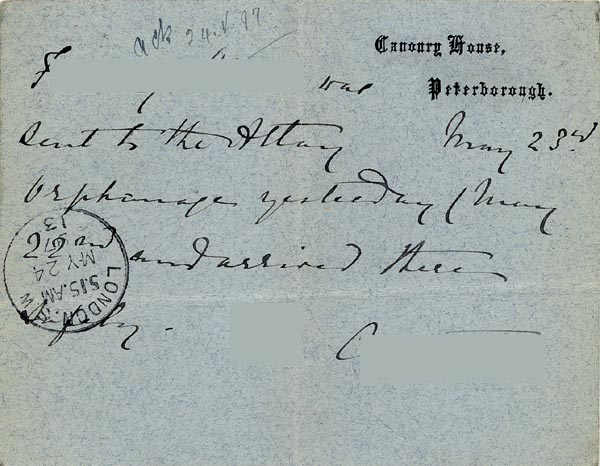 ack 24.V.
Canonry House,
Peterborough.
May 23rd
was
sent to the
Orphanage yesterday (May
22nd and arrived there
safely.
LONDON. S.W.
5.15.AM
MY 24
13